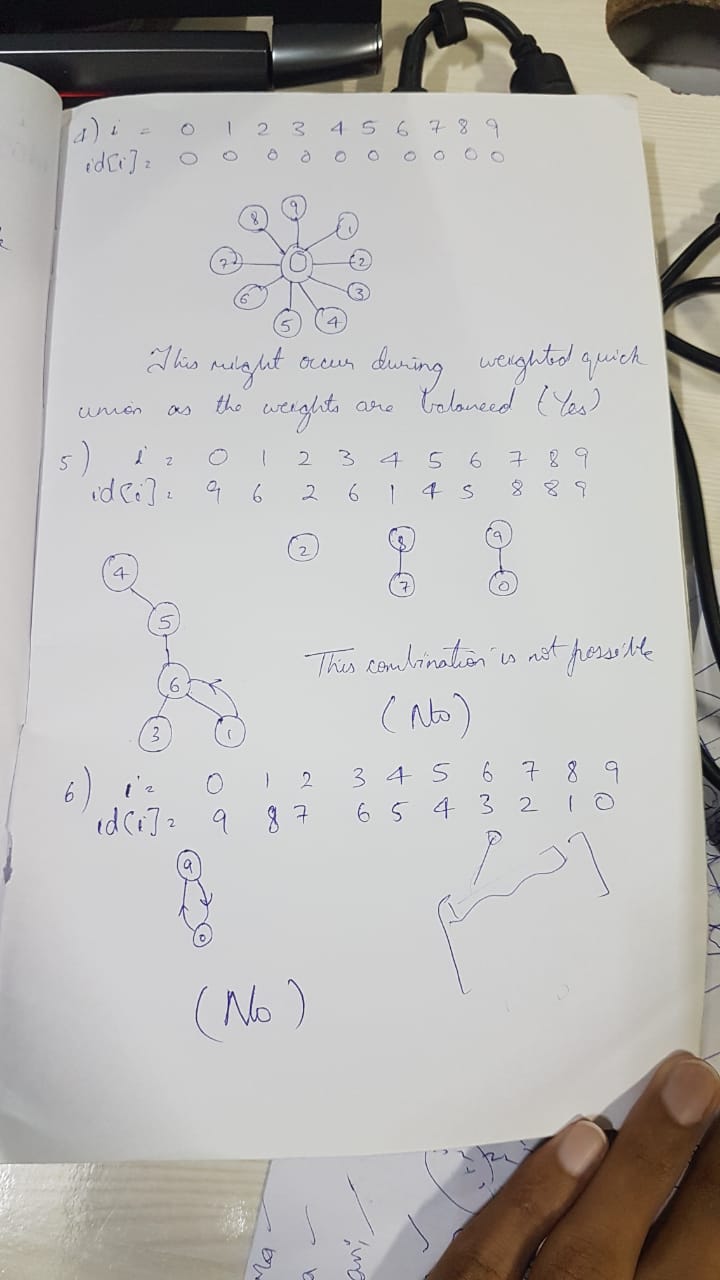 4) i = 0 1 2 3 4 5 6 7 8 9
id[i] = 0 0 0 0 0 0 0 0 0 0
8 9 1
7 0 2
6 5 4 3
This might occur during weighted quick
union as the weights are balanced (Yes)
5) i = 0 1 2 3 4 5 6 7 8 9
id[i] = 9 6 2 6 1 4 5 8 8 9
4 2 8 9
5 7 0
6
3 1
This combination is not possible
(No)
6) i = 0 1 2 3 4 5 6 7 8 9
id[i] = 9 8 7 6 5 4 3 2 1 0
9
0
(No)